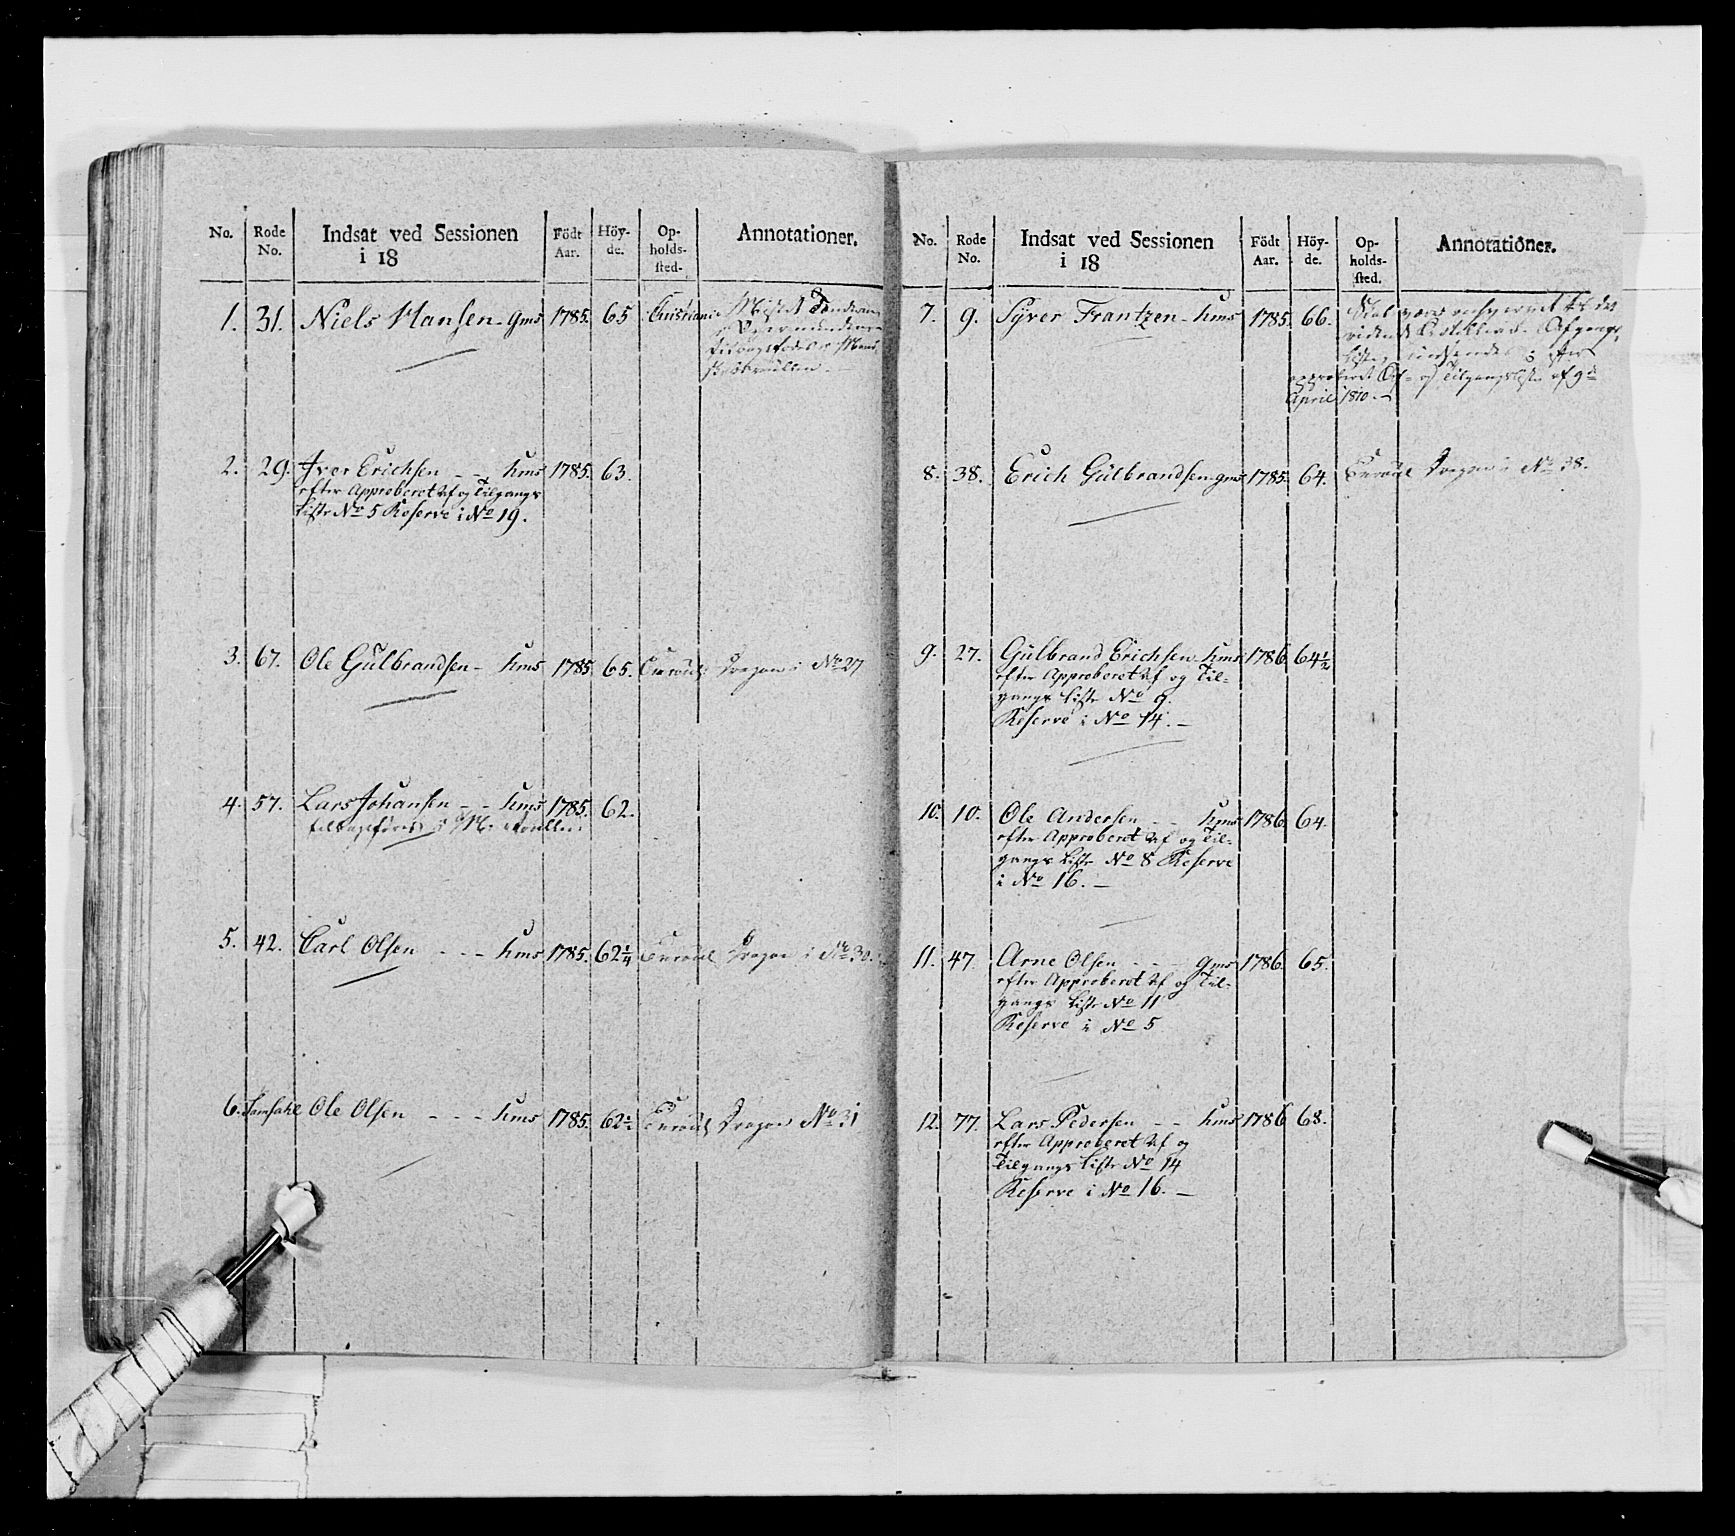 No. Rode No. Indsat ved Sessionen i 18 Födt Aar. Höy-de. Op-holds-sted. Annotationer.
1. 31. Niels Hansen - gms 1785. 65 Christiania Mistet
2. 29. Iver Erichsen - - kms 1785. 63.
efter Approberet Af og Tilgangs
Liste No 5 Reserve i No 19.
3. 67. Ole Gülbrandsen - kms 1785. 65. Dragon i No 27
4. 57. Lars Johansen - - kms 1785. 62.
5. 42. Carl Olsen - - - kms 1785. 62 1/4 Dragon i No 30.
6. Ole Olsen - - - kms 1785. 62 Dragon No 31
No. Rode No. Indsat ved Sessionen i 18 Födt Aar. Höy-de. Op-holds-sted. Annotationer.
7. 9. Syver Frantzen - kms 1785. 66. Skal
Liste
Af- og Tilgangsliste af 9de
April 1810. -
8. 38. Erich Gülbrandsen - gms 1785. 64. Dragon i No 38.
9. 27. Gülbrand Erichsen - kms 1786. 64 1/2
efter Approberet Af og Til-
gangs Liste No 9.
Reserve i No 14. -
10. 10. Ole Andersen - - kms 1786. 64.
efter Approberet Af og Til-
gangs Liste No 8 Reserve
i No 16. -
11. 47. Arne Olsen - - - gms 1786. 65.
efter Approberet Af og Til-
gangs Liste No 11
Reserve i No 5
12. 77. Lars Pedersen - - kms 1786 68.
efter Approberet Af og
Tilgangs Liste No 14
Reserve i No 16. -